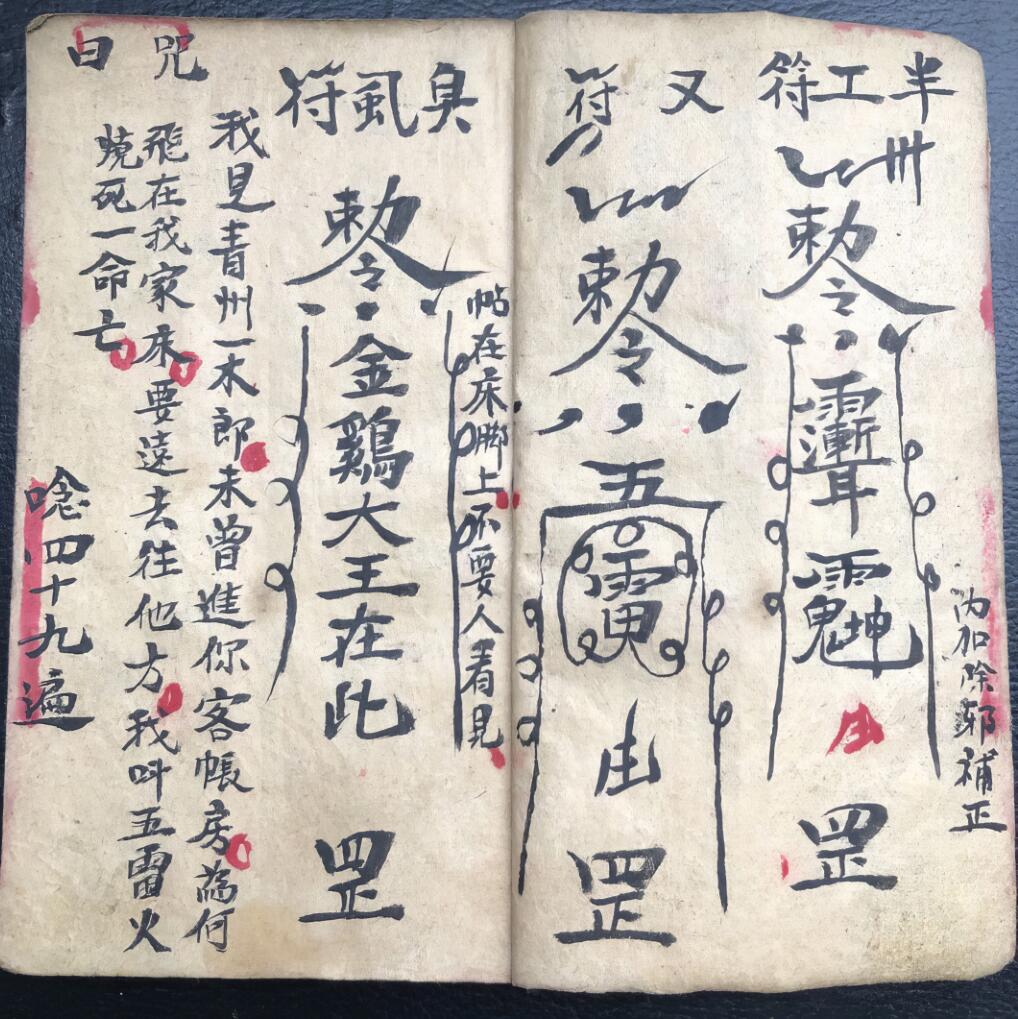 半工符
卅
勅令
罡
内加除邪補正
又符
勅令
五雷
罡
臭虱符
帖在床脚上不要人看見
勅令
金鷄大王在此
罡
咒曰
我見青州一木郎未曾進你客帳房為何
飛在我家床要遠去往他方我叫五雷火
燒死一命亡
唸四十九遍